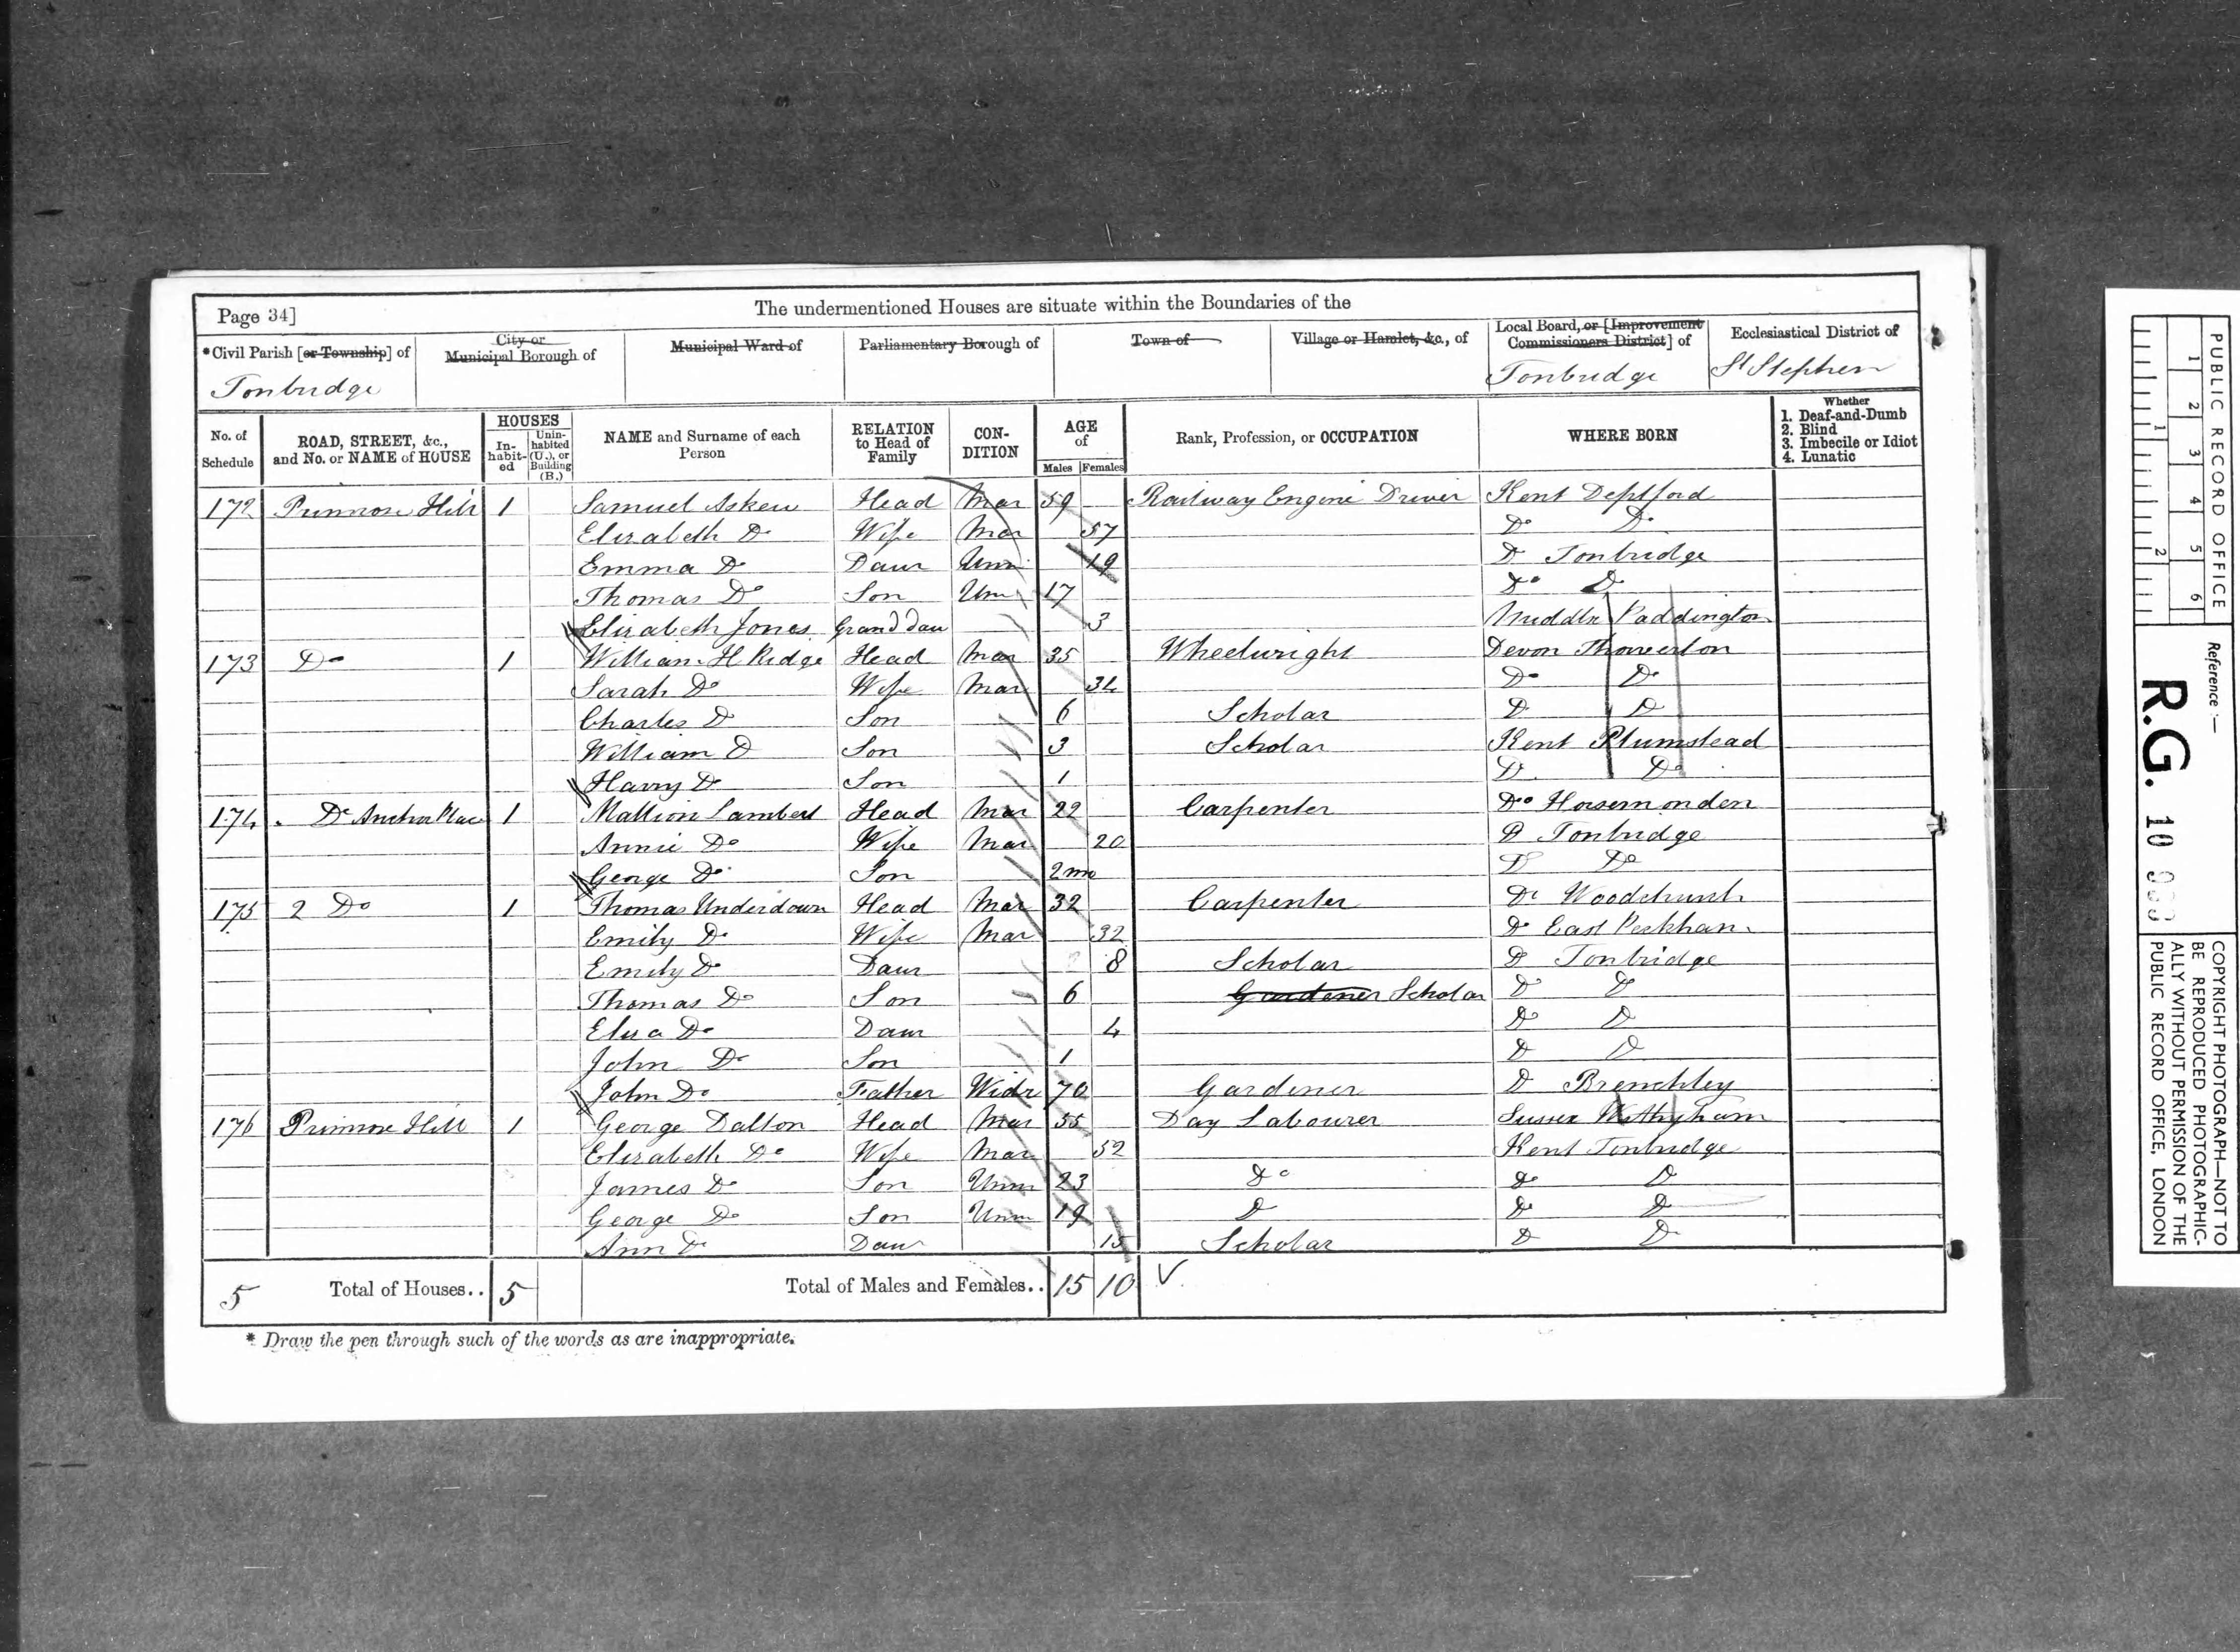 Page 34]
The undermentioned Houses are situate within the Boundaries of the
*Civil Parish [or Township] of
City or Municipal Borough of
Municipal Ward of
Parliamentary Borough of
Town of
Village or Hamlet, &c., of
Local Board, or [Improvement Commissioners District] of
Ecclesiastical District of
Tonbridge
Tonbridge
St Stephen
No. of Schedule
ROAD, STREET, &c., and No. or NAME of HOUSE
HOUSES
In-habit-ed
Unin-habited (U.), or Building (B.)
NAME and Surname of each Person
RELATION to Head of Family
CON-DITION
AGE of
Males Females
Rank, Profession, or OCCUPATION
WHERE BORN
Whether
1. Deaf-and-Dumb
2. Blind
3. Imbecile or Idiot
4. Lunatic
172 Primrose Hill 1 Samuel Askew Head Mar 59 Railway Engine Driver Kent Deptford
Elizabeth Do Wife Mar 57 Do Do
Emma Do Daur Unm 19 Do Tonbridge
Thomas Do Son Unm 17 Do Do
Elizabeth Jones Grand Dau 3 Middlx Paddington
173 Do 1 William H Ridge Head Mar 35 Wheelwright Devon Thorverton
Sarah Do Wife Mar 34 Do Do
Charles Do Son 6 Scholar Do Do
William Do Son 3 Scholar Kent Plumstead
Harry Do Son 1 Do Do
174 Do Anchor Place 1 Lambert Head Mar 22 Carpenter Do Horsmonden
Annie Do Wife Mar 20 Do Tonbridge
George Do Son 2mo Do Do
175 2 Do 1 Thomas Underdown Head Mar 32 Carpenter Do Woodchurch
Emily Do Wife Mar 32 Do East Peckham
Emily Do Daur 8 Scholar Do Tonbridge
Thomas Do Son 6 Gardener Scholar Do Do
Eliza Do Daur 4 Do Do
John Do Son 1 Do Do
John Do Father Widr 70 Gardener Do Brenchley
176 Primrose Hill 1 George Dalton Head Mar 55 Day Labourer Sussex Withyham
Elizabeth Do Wife Mar 52 Kent Tonbridge
James Do Son Unm 23 Do Do Do
George Do Son Unm 19 Do Do Do
Ann Do Daur 15 Scholar Do Do
5 Total of Houses.. 5 Total of Males and Females.. 15 10
* Draw the pen through such of the words as are inappropriate.
PUBLIC RECORD OFFICE
1 2 3 4 5 6
1 2
Reference:—
R.G. 10
COPYRIGHT PHOTOGRAPH—NOT TO
BE REPRODUCED PHOTOGRAPHIC-
ALLY WITHOUT PERMISSION OF THE
PUBLIC RECORD OFFICE, LONDON